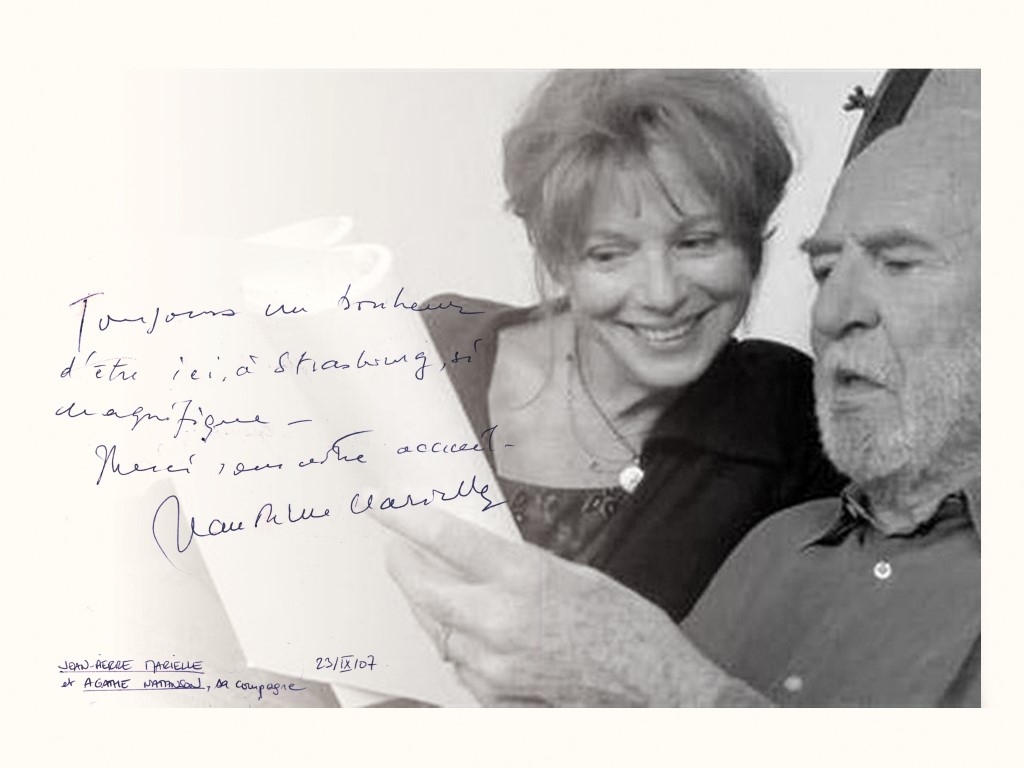 Toujours un bonheur
d'être ici, à Strasbourg, si
magnifique –
Merci pour votre accueil –
Jean Pierre Marielle
JEAN-PIERRE MARIELLE 23/IX/07
et AGATHE NATANSON, sa compagne